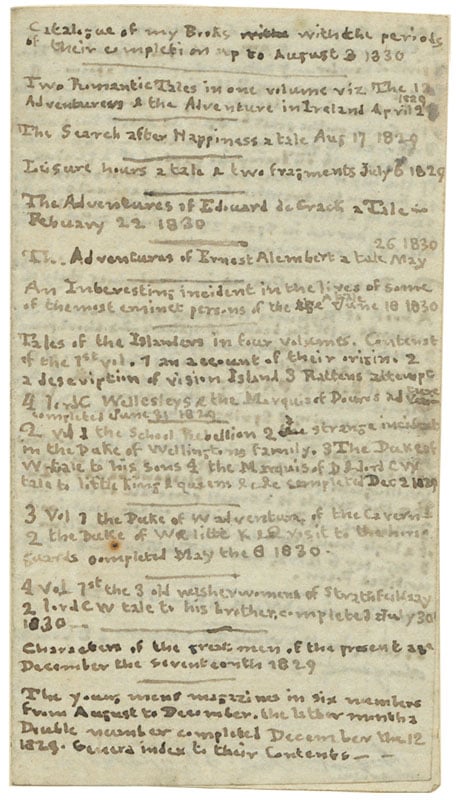 Catalogue of my Books with the periods
of their completion up to August 3 1830
Two Romantic Tales in one volume viz. The 12
Adventurers & the Adventure in Ireland April 28 1829
The Search after Happiness a tale Aug 17 1829
Leisure hours a tale & two fragments July 6 1829
The Adventures of Edouard de Crack a Tale
Febuary 22 1830
26 1830
The Adventures of Ernest Alembert a tale May
An Interesting incident in the lives of some
of the most eminet persons of the age a tale June 18 1830
Tales of the Islanders in four volumes. Contenst
of the 1st vol. 1 an account of their origin. 2
a description of vision Island 3 Rattens attempt
4 lord C Wellesleys & the Marquis of Douros adventure
completed June 31 1829
2 vol 1 the School Rebellion 2 the strange incident
in the Duke of Wellingtons family. 3 The Duke of
W tale to his sons 4 the Marquis of D & lord C W
tale to little king & queens completed Dec 2 1829
3 Vol 1 the Duke of W adventure of the Cavern
2 the Duke of W & litt K & Q visit to the horse
guards completed May the 8 1830.
4 Vol. 1st the 3 old washerwomens of Strathfieldsay
2 lord C W tale to his brother, completed July 30
1830
Characters of the great men of the present age
December the seventeenth 1829
The young mens magazines in six numbers
from August to December. the latter months
Double number completed December the 12
1829. General index to their Contents